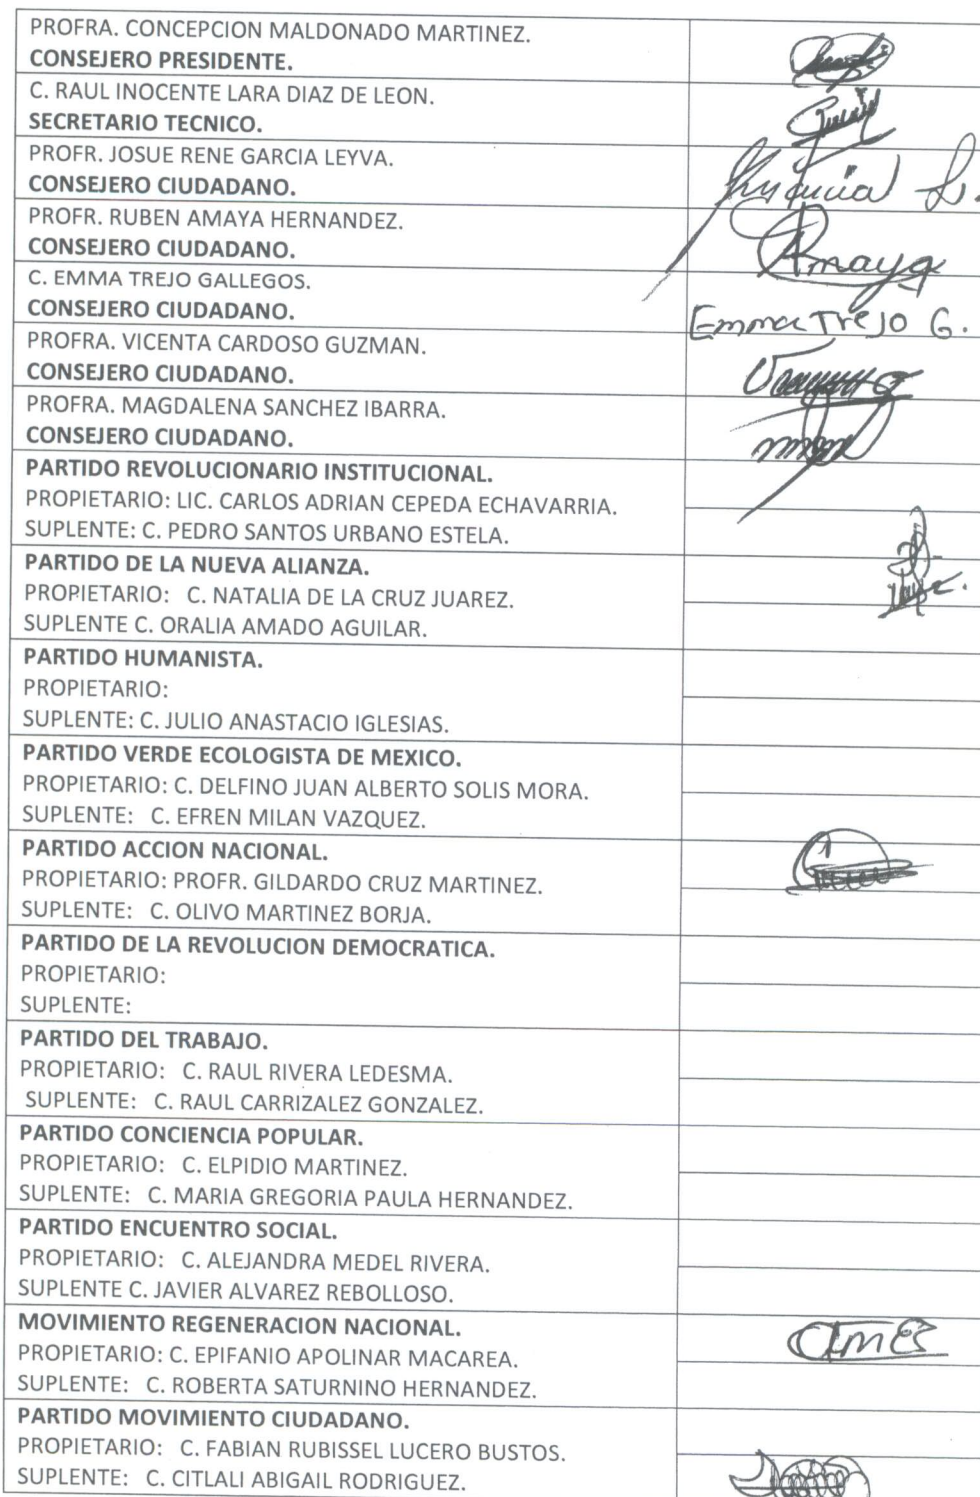 PROFRA. CONCEPCION MALDONADO MARTINEZ.
CONSEJERO PRESIDENTE.
C. RAUL INOCENTE LARA DIAZ DE LEON.
SECRETARIO TECNICO.
PROFR. JOSUE RENE GARCIA LEYVA.
CONSEJERO CIUDADANO.
PROFR. RUBEN AMAYA HERNANDEZ.
CONSEJERO CIUDADANO.
Amaya
C. EMMA TREJO GALLEGOS.
CONSEJERO CIUDADANO.
Emma Trejo G.
PROFRA. VICENTA CARDOSO GUZMAN.
CONSEJERO CIUDADANO.
PROFRA. MAGDALENA SANCHEZ IBARRA.
CONSEJERO CIUDADANO.
PARTIDO REVOLUCIONARIO INSTITUCIONAL.
PROPIETARIO: LIC. CARLOS ADRIAN CEPEDA ECHAVARRIA.
SUPLENTE: C. PEDRO SANTOS URBANO ESTELA.
PARTIDO DE LA NUEVA ALIANZA.
PROPIETARIO: C. NATALIA DE LA CRUZ JUAREZ.
SUPLENTE C. ORALIA AMADO AGUILAR.
PARTIDO HUMANISTA.
PROPIETARIO:
SUPLENTE: C. JULIO ANASTACIO IGLESIAS.
PARTIDO VERDE ECOLOGISTA DE MEXICO.
PROPIETARIO: C. DELFINO JUAN ALBERTO SOLIS MORA.
SUPLENTE: C. EFREN MILAN VAZQUEZ.
PARTIDO ACCION NACIONAL.
PROPIETARIO: PROFR. GILDARDO CRUZ MARTINEZ.
SUPLENTE: C. OLIVO MARTINEZ BORJA.
PARTIDO DE LA REVOLUCION DEMOCRATICA.
PROPIETARIO:
SUPLENTE:
PARTIDO DEL TRABAJO.
PROPIETARIO: C. RAUL RIVERA LEDESMA.
SUPLENTE: C. RAUL CARRIZALEZ GONZALEZ.
PARTIDO CONCIENCIA POPULAR.
PROPIETARIO: C. ELPIDIO MARTINEZ.
SUPLENTE: C. MARIA GREGORIA PAULA HERNANDEZ.
PARTIDO ENCUENTRO SOCIAL.
PROPIETARIO: C. ALEJANDRA MEDEL RIVERA.
SUPLENTE C. JAVIER ALVAREZ REBOLLOSO.
MOVIMIENTO REGENERACION NACIONAL.
PROPIETARIO: C. EPIFANIO APOLINAR MACAREA.
SUPLENTE: C. ROBERTA SATURNINO HERNANDEZ.
PARTIDO MOVIMIENTO CIUDADANO.
PROPIETARIO: C. FABIAN RUBISSEL LUCERO BUSTOS.
SUPLENTE: C. CITLALI ABIGAIL RODRIGUEZ.